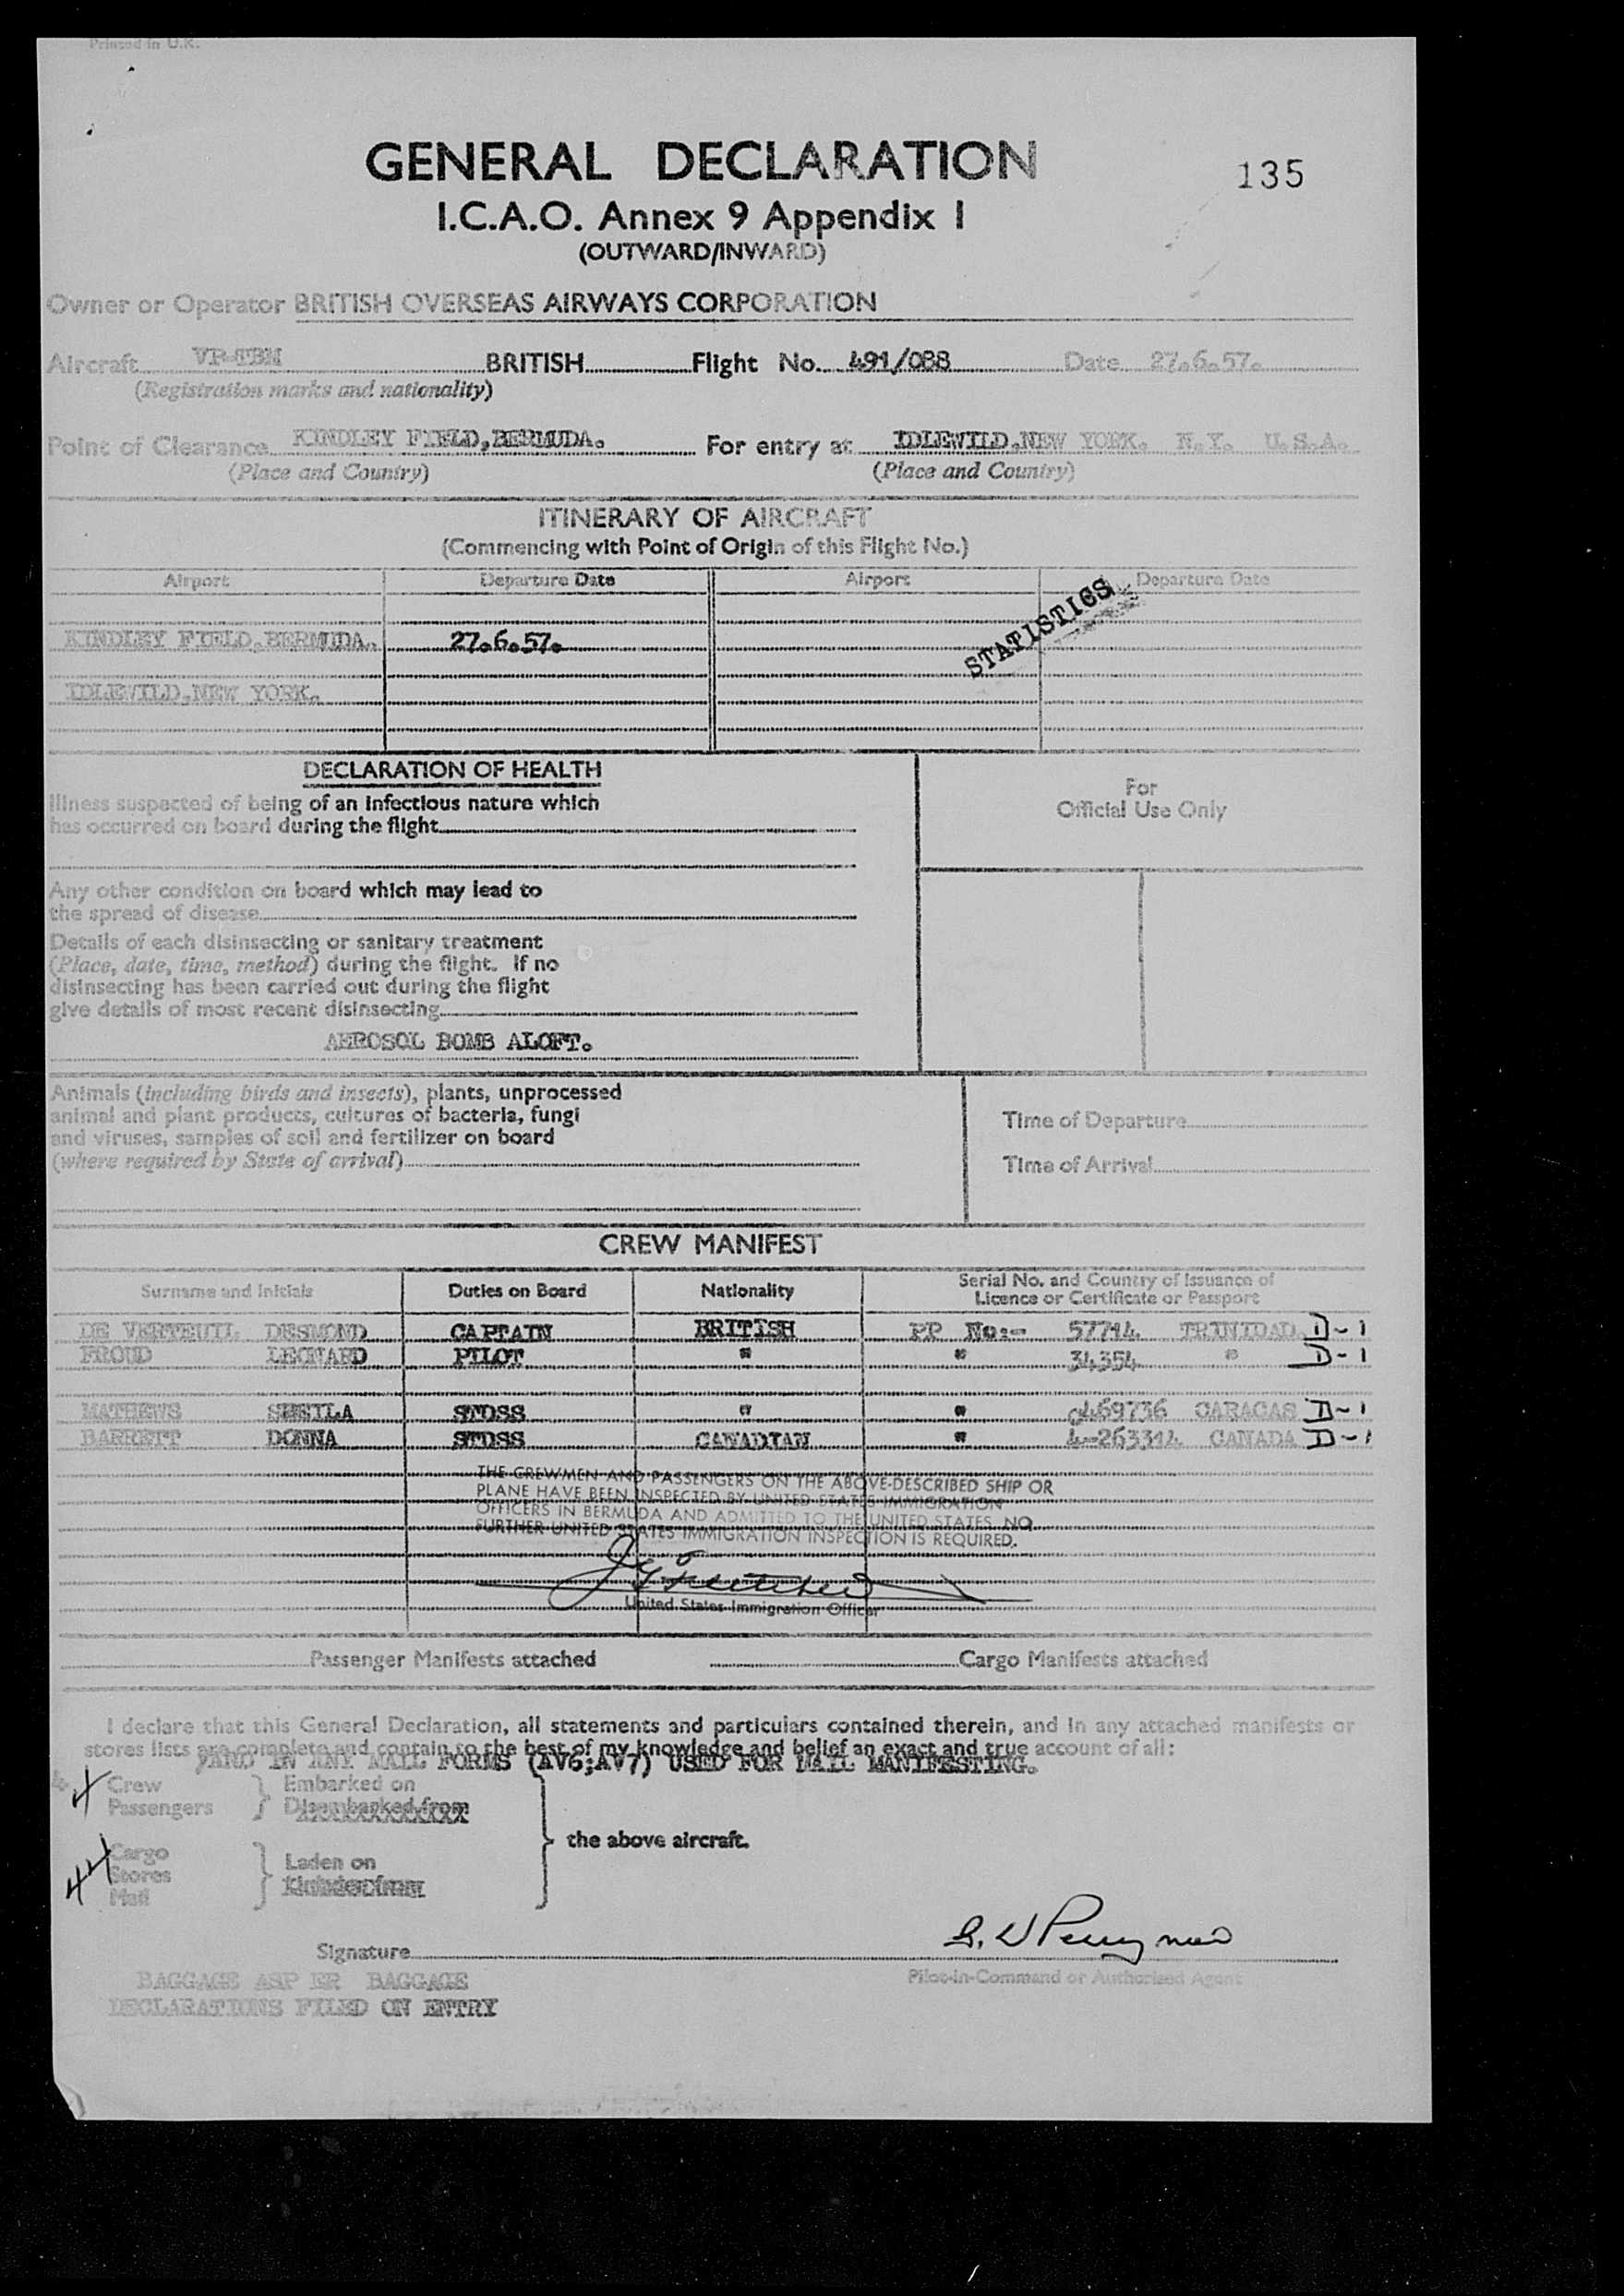 Printed in U.K.
GENERAL DECLARATION
135
I.C.A.O. Annex 9 Appendix I
(OUTWARD/INWARD)
Owner or Operator BRITISH OVERSEAS AIRWAYS CORPORATION
Aircraft VP-TBN BRITISH Flight No. 491/088 Date 27.6.57.
(Registration marks and nationality)
Point of Clearance KINDLEY FIELD,BERMUDA. For entry at IDLEWILD,NEW YORK. N.Y. U.S.A.
(Place and Country) (Place and Country)
ITINERARY OF AIRCRAFT
(Commencing with Point of Origin of this Flight No.)
Airport Departure Date Airport Departure Date
STATISTICS
KINDLEY FIELD,BERMUDA. 27.6.57.
IDLEWILD,NEW YORK.
DECLARATION OF HEALTH
Illness suspected of being of an infectious nature which
has occurred on board during the flight
For
Official Use Only
Any other condition on board which may lead to
the spread of disease
Details of each disinsecting or sanitary treatment
(Place, date, time, method) during the flight. If no
disinsecting has been carried out during the flight
give details of most recent disinsecting
AEROSOL BOMB ALOFT.
Animals (including birds and insects), plants, unprocessed
animal and plant products, cultures of bacteria, fungi
and viruses, samples of soil and fertilizer on board
(where required by State of arrival)
Time of Departure
Time of Arrival
CREW MANIFEST
Surname and Initials Duties on Board Nationality Serial No. and Country of Issuance of
Licence or Certificate or Passport
DE VERTEUIL DESMOND CAPTAIN BRITISH PP No:- 57714 TRINIDAD. D-1
PROUD LEONARD PILOT " " 34354 " D-1
MATHEWS SHEILA STDSS " " 469736 CARACAS D-1
BARRETT DONNA STDSS CANADIAN " 4-263314 CANADA D-1
THE CREWMEN AND PASSENGERS ON THE ABOVE-DESCRIBED SHIP OR
PLANE HAVE BEEN INSPECTED BY UNITED STATES IMMIGRATION
OFFICERS IN BERMUDA AND ADMITTED TO THE UNITED STATES. NO
FURTHER UNITED STATES IMMIGRATION INSPECTION IS REQUIRED.
United States Immigration Officer
Passenger Manifests attached Cargo Manifests attached
I declare that this General Declaration, all statements and particulars contained therein, and in any attached manifests or
stores lists are complete and contain to the best of my knowledge and belief an exact and true account of all:
AND IN ANY MAIL FORMS (AV6;AV7) USED FOR MAIL MANIFESTING.
4 Crew Embarked on
Passengers Disembarked from
the above aircraft.
44 Cargo
Stores Laden on
Mail
Signature
Pilot-in-Command or Authorised Agent
BAGGAGE ASP ER BAGGAGE
DECLARATIONS FILED ON ENTRY